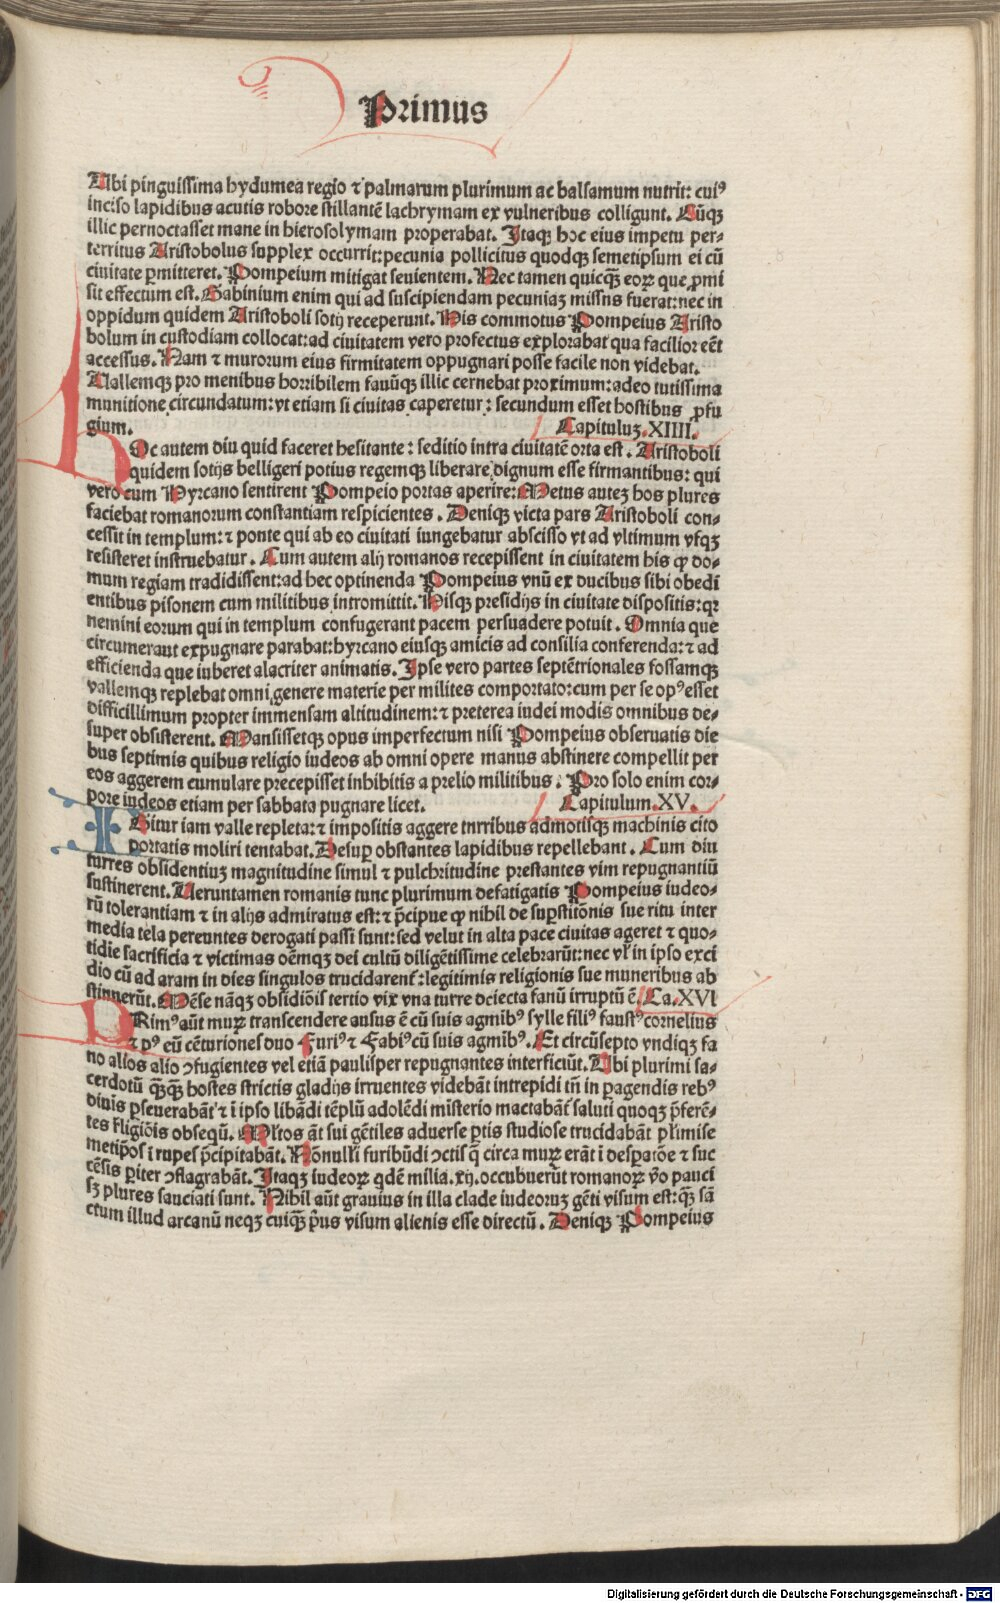 Primus
Ubi pinguissima hydumea regio ⁊ palmarum plurimum ac balsamum nutrit: cuiꝰ
inciso lapidibus acutis robore stillantē lachrymam ex vulneribus colligunt. Cūqꝫ
illic pernoctasset mane in hierosolymam properabat. Itaqꝫ hoc eius impetu per⸗
territus Aristobolus supplex occurrit: pecunia pollicitus quodqꝫ semetipsum ei cū
ciuitate ꝑmitteret. Pompeium mitigat seuientem. Nec tamen quicqꝫ̄ eoꝝ que ꝓmi
sit effectum est. Gabinium enim qui ad suscipiendam pecuniaꝫ missns fuerat: nec in
oppidum quidem Aristoboli sotij receperunt. His commotus Pompeius Aristo
bolum in custodiam collocat: ad ciuitatem vero profectus explorabat qua facilior eēt
accessus. Nam ⁊ murorum eius firmitatem oppugnari posse facile non videbat.
Uallemqꝫ pro menibus horribilem fanūqꝫ illic cernebat proximum: adeo tutissima
munitione circundatum: vt etiam si ciuitas caperetur: secundum esset hostibus ꝓfu
gium. Capituluꝫ. XIIII.
HOc autem diu quid faceret hesitante: seditio intra ciuitatē orta est. Aristoboli
quidem sotijs belligeri potius regemqꝫ liberare dignum esse firmantibus: qui
vero cum Hyrcano sentirent Pompeio portas aperire: Metus auteꝫ hos plures
faciebat romanorum constantiam respicientes. Deniqꝫ victa pars Aristoboli con⸗
cessit in templum: ⁊ ponte qui ab eo ciuitati iungebatur abscisso vt ad vltimum vsqꝫ
resisteret instruebatur. Cum autem alij romanos recepissent in ciuitatem his qꝫ do⸗
mum regiam tradidissent: ad hec optinenda Pompeius vnū ex ducibus sibi obedi
entibus pisonem cum militibus intromittit. Hisqꝫ presidijs in ciuitate dispositis: qꝛ
nemini eorum qui in templum confugerant pacem persuadere potuit. Omnia que
circumerant expugnare parabat: hyrcano eiusqꝫ amicis ad consilia conferenda: ⁊ ad
efficienda que iuberet alacriter animatis. Ipse vero partes septētrionales fossamqꝫ
vallemqꝫ replebat omni genere materie per milites comportato: cum per se opꝰ esset
difficillimum propter immensam altitudinem: ⁊ preterea iudei modis omnibus de⸗
super obsisterent. Mansissetqꝫ opus imperfectum nisi Pompeius obseruatis die
bus septimis quibus religio iudeos ab omni opere manus abstinere compellit per
eos aggerem cumulare precepisset inhibitis a prelio militibus. Pro solo enim cor⸗
pore iudeos etiam per sabbata pugnare licet. Capitulum. XV.
IGitur iam valle repleta: ⁊ impositis aggere tnrribus admotisqꝫ machinis cito
portatis moliri tentabat. Desuꝑ obstantes lapidibus repellebant. Cum diu
turres obsidentiuꝫ magnitudine simul ⁊ pulchritudine prestantes vim repugnantiū
sustinerent. Ueruntamen romanis tunc plurimum defatigatis Pompeius iudeo⸗
rū tolerantiam ⁊ in alijs admiratus est: ⁊ p̄cipue qꝫ nihil de suꝑstitōnis sue ritu inter
media tela pereuntes derogati passi sunt: sed velut in alta pace ciuitas ageret ⁊ quo⸗
tidie sacrificia ⁊ victimas oēmqꝫ dei cultū diligētissime celebrarūt: nec vl̓ in ipso exci
dio cū ad aram in dies singulos trucidarent̓: legitimis religionis sue muneribus ab
stinnerūt. Mēse nāqꝫ obsidiōis tertio vix vna turre deiecta fanū irruptū ē. Ca. XVI
PRimꝰ aūt muꝝ transcendere ausus ē cū suis agmibꝰ sylle filiꝰ faustꝰ cornelius
⁊ pꝰ cū cēturiones duo Furiꝰ ⁊ Fabiꝰ cū suis agmibꝰ. Et circūsepto vndiqꝫ fa
no alios alio ↄfugientes vel etiā paulisper repugnantes interficiūt. Ubi plurimi sa⸗
cerdotū qꝫ̄qꝫ̄ hostes strictis gladijs irruentes videbāt intrepidi tn̄ in ꝑagendis rebꝰ
diuis ꝑseuerabāt ⁊ ī ipso libādi tēplū adolēdi misterio mactabāt̓ saluti quoqꝫ p̄ferē⸗
tes r̓ligiōis obsequ. Ml̓tos āt sui gētiles aduerse ꝑtis studiose trucidabāt pl̓imise
metip̄os ī rupes p̄cipitabāt. Nōnulli furibūdi ↄctis q̄ circa muꝝ erāt ī desꝑatōe ⁊ suc
cēsis ꝑiter ↄflagrabāt. Itaqꝫ iudeoꝝ qdē milia. xij. occubuerūt romanoꝝ v̓o pauci
sꝫ plures sauciati sunt. Nihil aūt grauius in illa clade iudeoruꝫ gēti visum est: qꝫ̄ sā
ctum illud arcanū neqꝫ cuiqꝫ̄ p̄us visum alienis esse directū. Deniqꝫ Pompeius
Digitalisierung gefördert durch die Deutsche Forschungsgemeinschaft - DFG